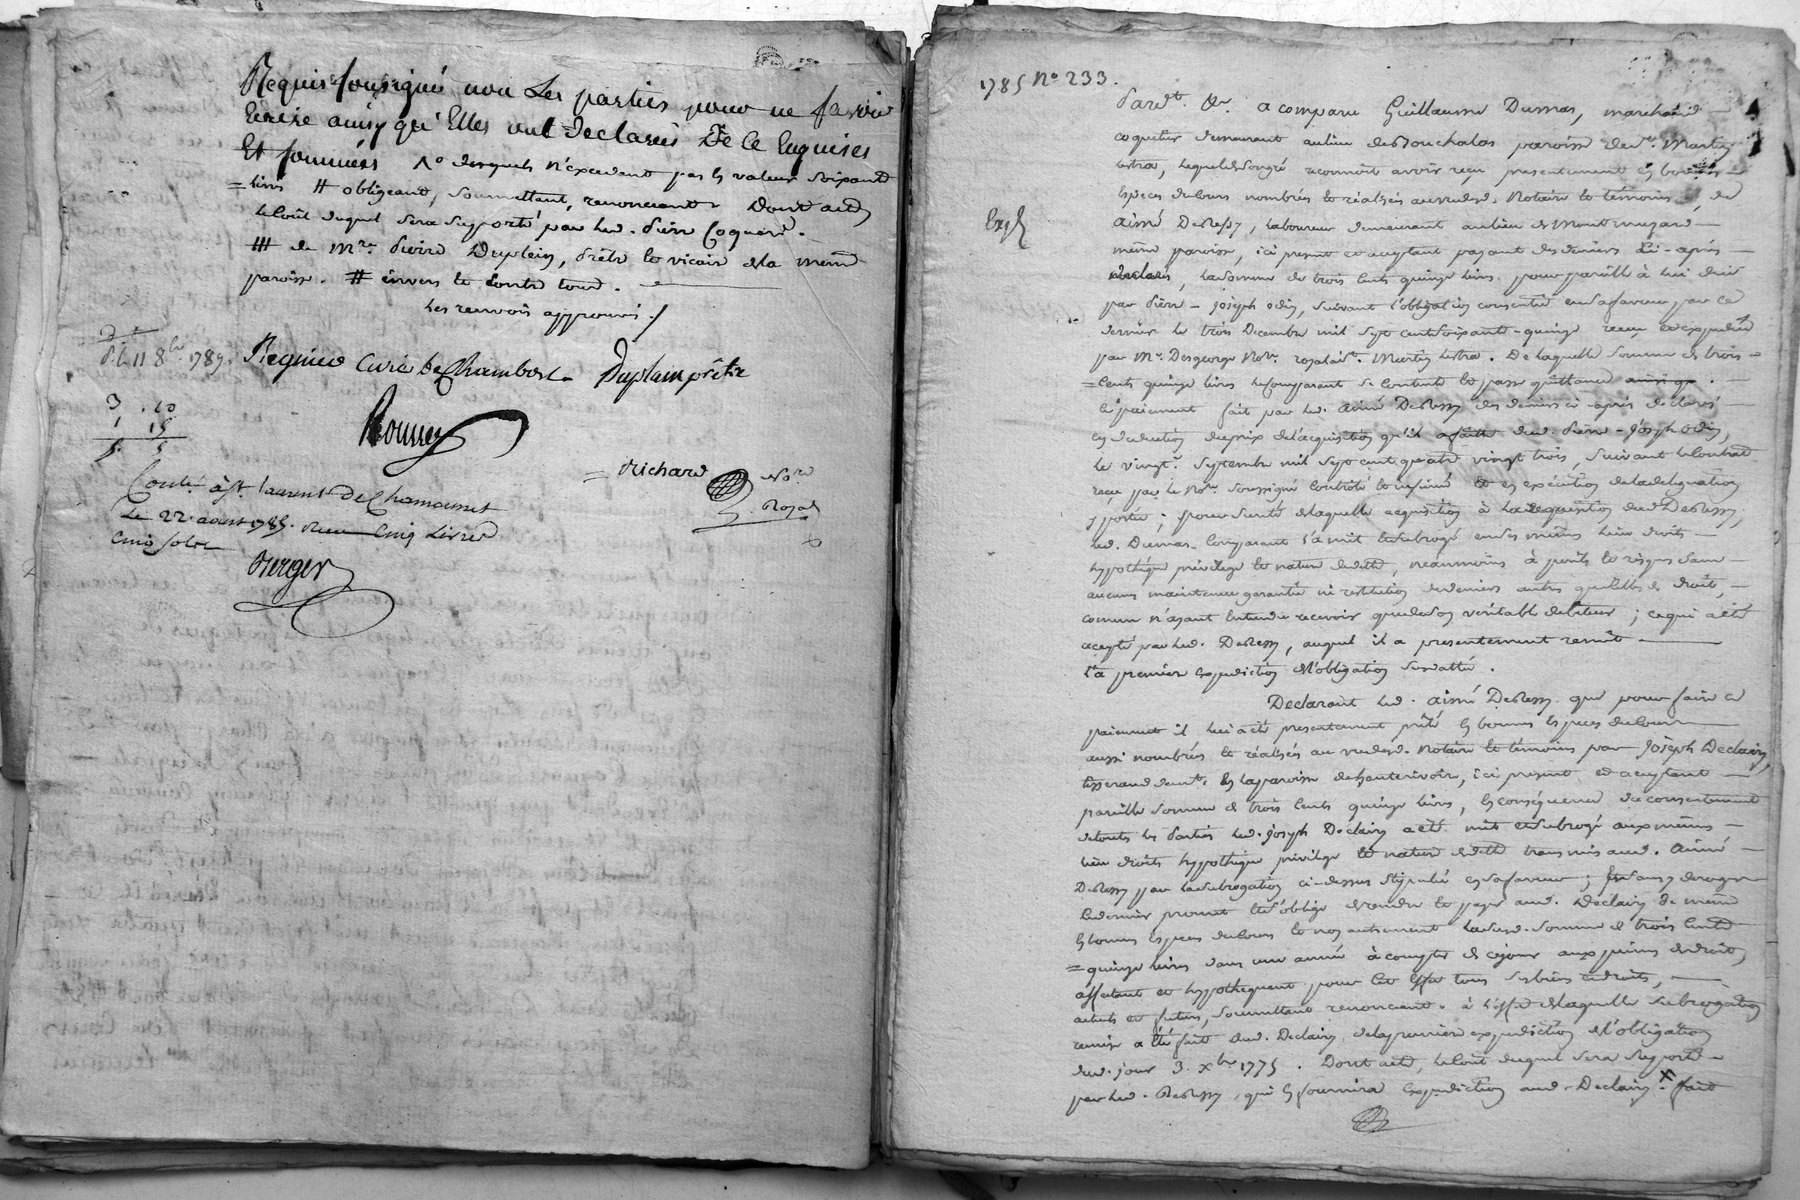 Requis soussigné non Les parties pour ne savoir
Ecrire ainsy qu'Elles ont declarées De ce Enquises
Et sommées ^o desquels n'excedent pas la valeur soixante
= livres # obligeant, soumettant, renonceant Dont acte
le coût duquel sera suporté par led. Pierre Coquard.
### de Mre. Pierre Duplein, Prêtre et vicaire de la même
paroisse. # envers et contre tous.
Les renvois approuvés ./.
11 8bre 1785. Curé de Chambost Duplain prêtre
3 . 10
1 . 15
5 . 5
Richard No.re
Royal
Contlé à St. laurent De Chamousset
Le 22 aoust 1785. reçu Cinq Livres
Cinq sols
Berger
1785 No. 233.
Pardt. &r. a comparu Guillaume Dumas, marchand
coquetier demeurant au lieu des paroisse de St. Martin
Lestra, lequel de son gré reconnoit avoir reçu presentement en bonnes
Especes de cours nombrées et réalisées au vu dud. Notaire et témoins, de
Expé
aimé DeRessy, laboureur demeurant au lieu de Montmezard
même paroisse, ici present et acceptant payant des deniers ci-après
declarés, la somme de trois Cents quinze livres pour pareille à lui due
par Pierre-Joseph Odin, suivant l'obligation consentie en sa faveur par ce
dernier le trois Decembre mil sept cent soixante-quinze reçue et expediée
par Me. Desgeorge Nore. royal à St. Martin Lestra. De laquelle somme de trois
= Cents quinze livres le comparant se contente et passe quittance
le paiement fait par led. aimé DeRessy des deniers ci-après declarés
en deduction du prix de l'acquisition qu'il a faitte dud. Pierre-Joseph Odin,
le vingt Septembre mil sept cent quatre vingt trois, suivant le Contrat
reçu par le Nore. soussigné Contrôlé et insinué et en exécution de la delegation
y portée; pour sureté de laquelle acquisition à la requisition dud DeRessy,
led. Dumas Comparant l'a mit et subrogé en ses mêmes lieu droits
hypothèque privilege et nature de dette, neanmoins à perils et risques sans
aucune maintenue garantie ni restitution de deniers autres que celles de droit,
comme n'ayant entendu recevoir que de son veritable debiteur; ce qui a été
accepté par led. DeRessy, auquel il a presentement remit
la premiere expedition de l'obligation susdattée.
Declarant led. aimé DeRessy que pour faire ce
paiement il lui a été presentement prêté en bonnes Especes de cours
aussi nombrées et réalisées au vu dud. Notaire et témoins par Joseph Declairy,
tisserand demt. en la paroisse de hauterivoire, ici present et acceptant
pareille somme de trois Cents quinze livres, en conséquence du consentement
de toutes les Parties led. Joseph Declairy a été mit et subrogé aux mêmes
lieu droits hypothèque privilege et nature de dette transmis aud. Aimé
DeRessy par la subrogation ci-dessus stipulée en sa faveur; sans y deroger
le dernier promet et s'oblige de rendre et payer aud. Declairy de même
en bonnes Especes de cours et non autrement lad. somme de trois Cents
= quinze livres dans une année à compter de ce jour aux peines de droit,
affectant et hypothequant pour Cet effet tous ses biens et droits,
actuels et futurs, soumettant renonceant. à l'effet de laquelle subrogation
remise a été faite aud. Declairy de la premiere expedition de l'obligation
dud. jour 3 xbre 1775. Dont acte, le coût duquel sera suporté
par led. DeRessy, qui en fournira Expedition aud. Declairy. x fait